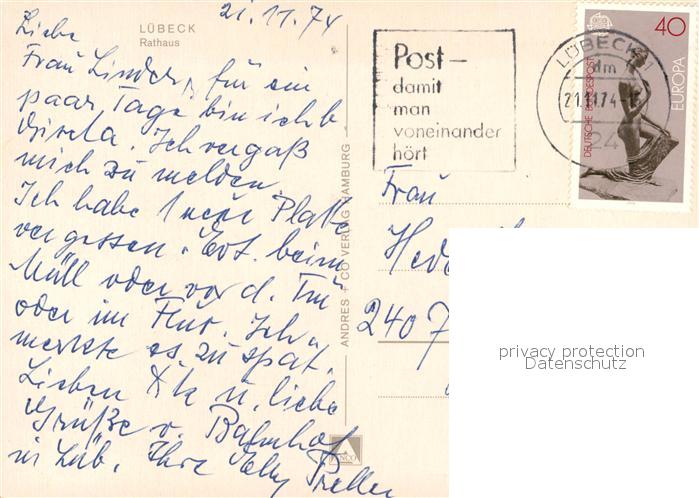 LÜBECK
Rathaus
21.11.74
Liebe
Frau Linder, für ein
paar Tage bin ich b
Gisela. Ich vergaß
mich zu melden.
Ich habe 1 neue Platte
vergessen. Evt. beim
Müll oder vor d. Tür
oder im Flur. Ich
merkte es zu spät.
Lieben Dk u. liebe
Grüße v. Bahnhof
in Lüb. Ihre Elly Preller
ANDRES + CO VERLAG HAMBURG
Post-
damit
man
voneinander
hört
LÜBECK 1
dm
21.11.74
24
40
EUROPA
DEUTSCHE BUNDESPOST
Frau
2407
privacy protection
Datenschutz